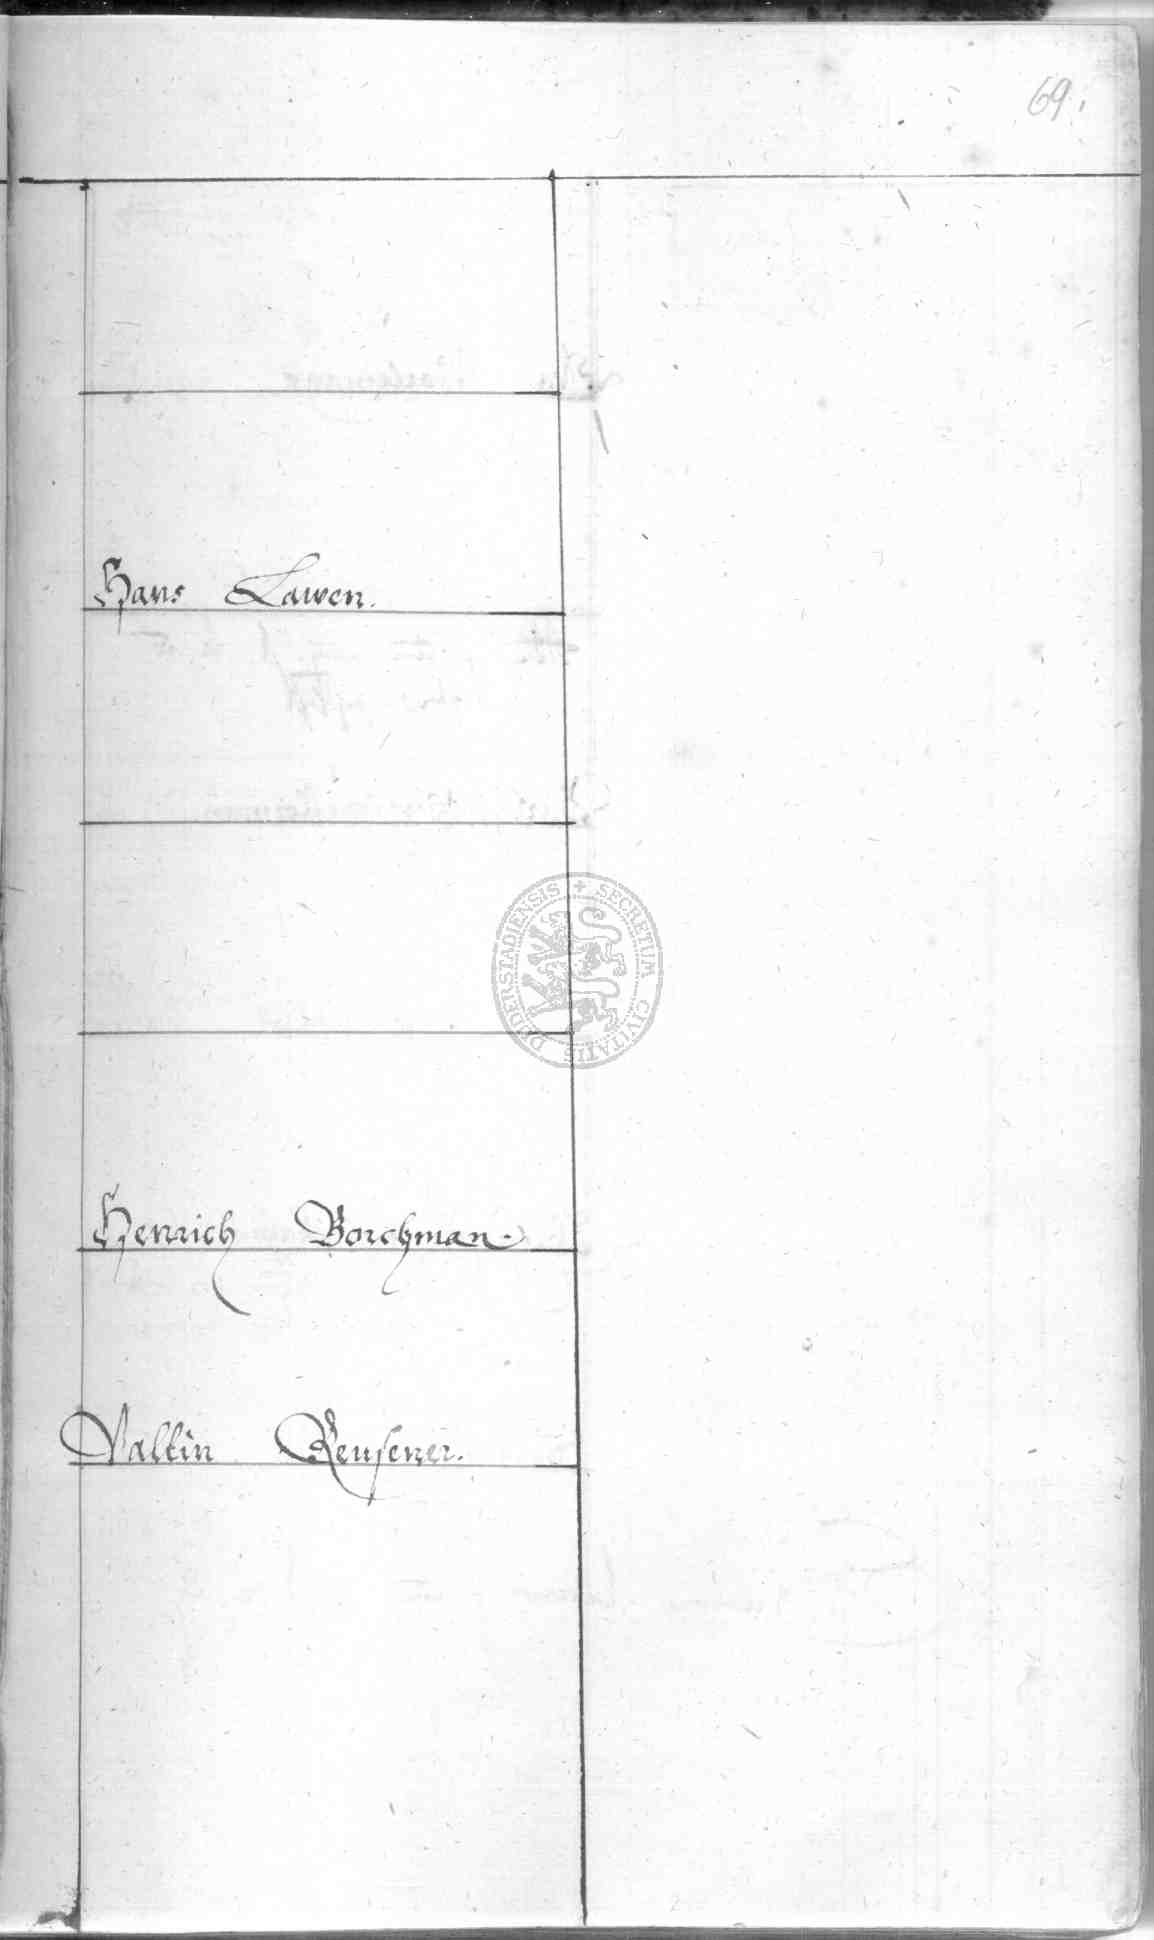 69.
Hans Lawen.
SECRETUM CIVITATIS DUDERSTADIENSIS
Henrich Borchman.
Valtin Reusener.